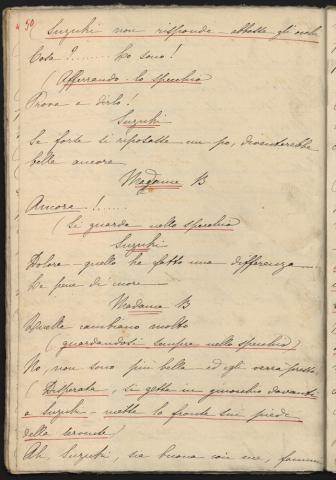 50
(Suzuki non risponde - abbassa gli occhi
Cosa?...... Lo sono!
(Afferrando lo specchio)
Prova a dirlo!
Suzuki
Se forte ti riposaste un po, diventerebbe
bella ancora
Madame B
Ancora!......
(Si guarda nello specchio)
Suzuki
Dolore - quello ha fatto una differenza
Le pene di cuore
Madame B
Quelle cambiano molto
(guardandosi sempre nello specchio)
No, non sono più bella - ed egli verrà presto
(Disperata, si getta in ginocchio davanti
a Suzuki - mette la fronte sui piedi
della servente)
Ah, Suzuki, sia buona con me, fammi